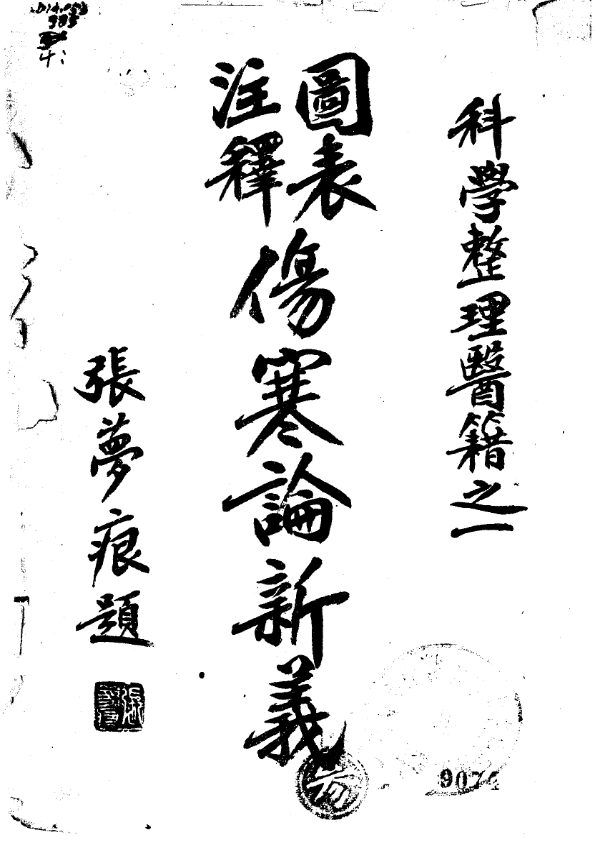 科學整理醫籍之一
圖表
注釋
傷寒論新義
張夢痕題
9074